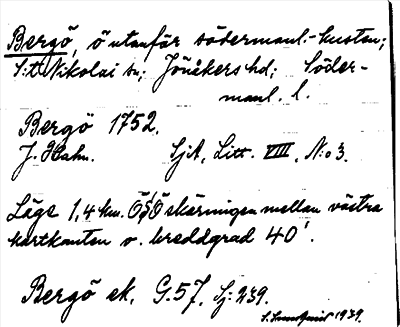 Bergö, ö utanför södermanl.-kusten;
S:t Nikolai sn; Jönåkers hd; Söder-
manl. l.
Bergö 1752.
J. Hahn. SjA, Litt. VIII, N:o 3.
Läge 1,4 km. ÖSÖ skärningen mellan västra
kartkanten o. breddgrad 40'.
Bergö ek. G.57, Sj: 239.
1939.